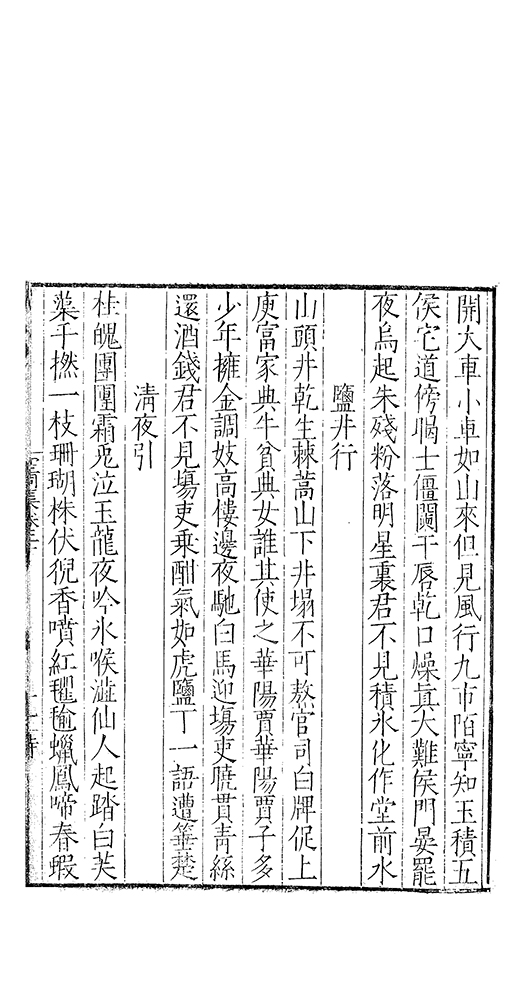 開大車小車如山來但見風行九市陌寧知玉積五
侯宅道傍暍士僵闌干唇乾口燥真大難侯門晏罷
夜烏起朱殘粉落明星裏君不見積氷化作堂前水
鹽井行
山頭井乾生棘蒿山下井塌不可熬官司白牌促上
庾富家典牛貧典女誰其使之華陽賈華陽賈子多
少年擁金調妓高樓邊夜馳白馬迎塲吏曉貫青絲
還酒錢君不見塲吏乗酣氣如虎鹽丁一語遭箠楚
清夜引
桂魄團團霜兎泣玉龍夜吟氷喉澁仙人起踏白芙
蕖千撚一枝珊瑚株伏猊香噴紅毺蠟鳳啼春暇